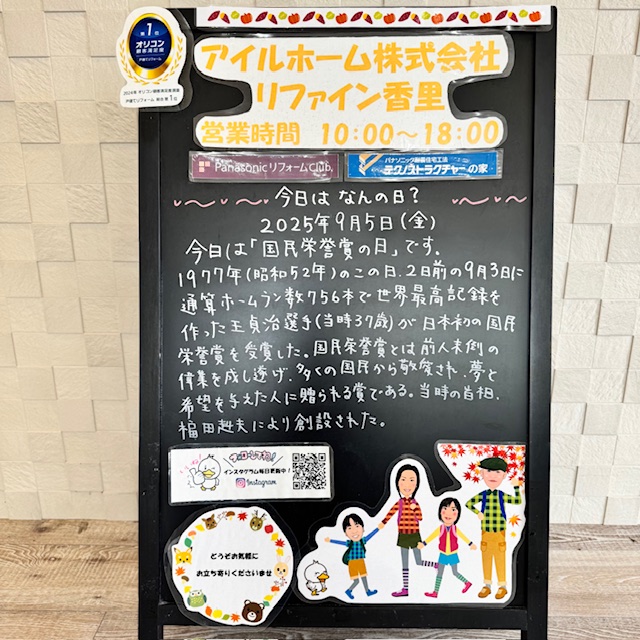 第1位
オリコン
顧客満足度
戸建てリフォーム
2024年 オリコン顧客満足度調査
戸建てリフォーム 総合 第1位
アイルホーム株式会社
リファイン香里
営業時間 10:00〜18:00
Panasonic リフォームClub
パナソニック耐震住宅工法
テクノストラクチャーの家
今日は なんの日?
2025年9月5日(金)
今日は「国民栄誉賞の日」です。
1977年(昭和52年)のこの日、2日前の9月3日に
通算ホームラン数756本で世界最高記録を
作った王貞治選手(当時37歳)が日本初の国民
栄誉賞を受賞した。国民栄誉賞とは前人未倒の
偉業を成し遂げ、多くの国民から敬愛され、夢と
希望を与えた人に贈られる賞である。当時の首相、
福田赳夫により創設された。
フォローしてね!
インスタグラム毎日更新中!
Instagram
どうぞお気軽に
お立ち寄りくださいませ